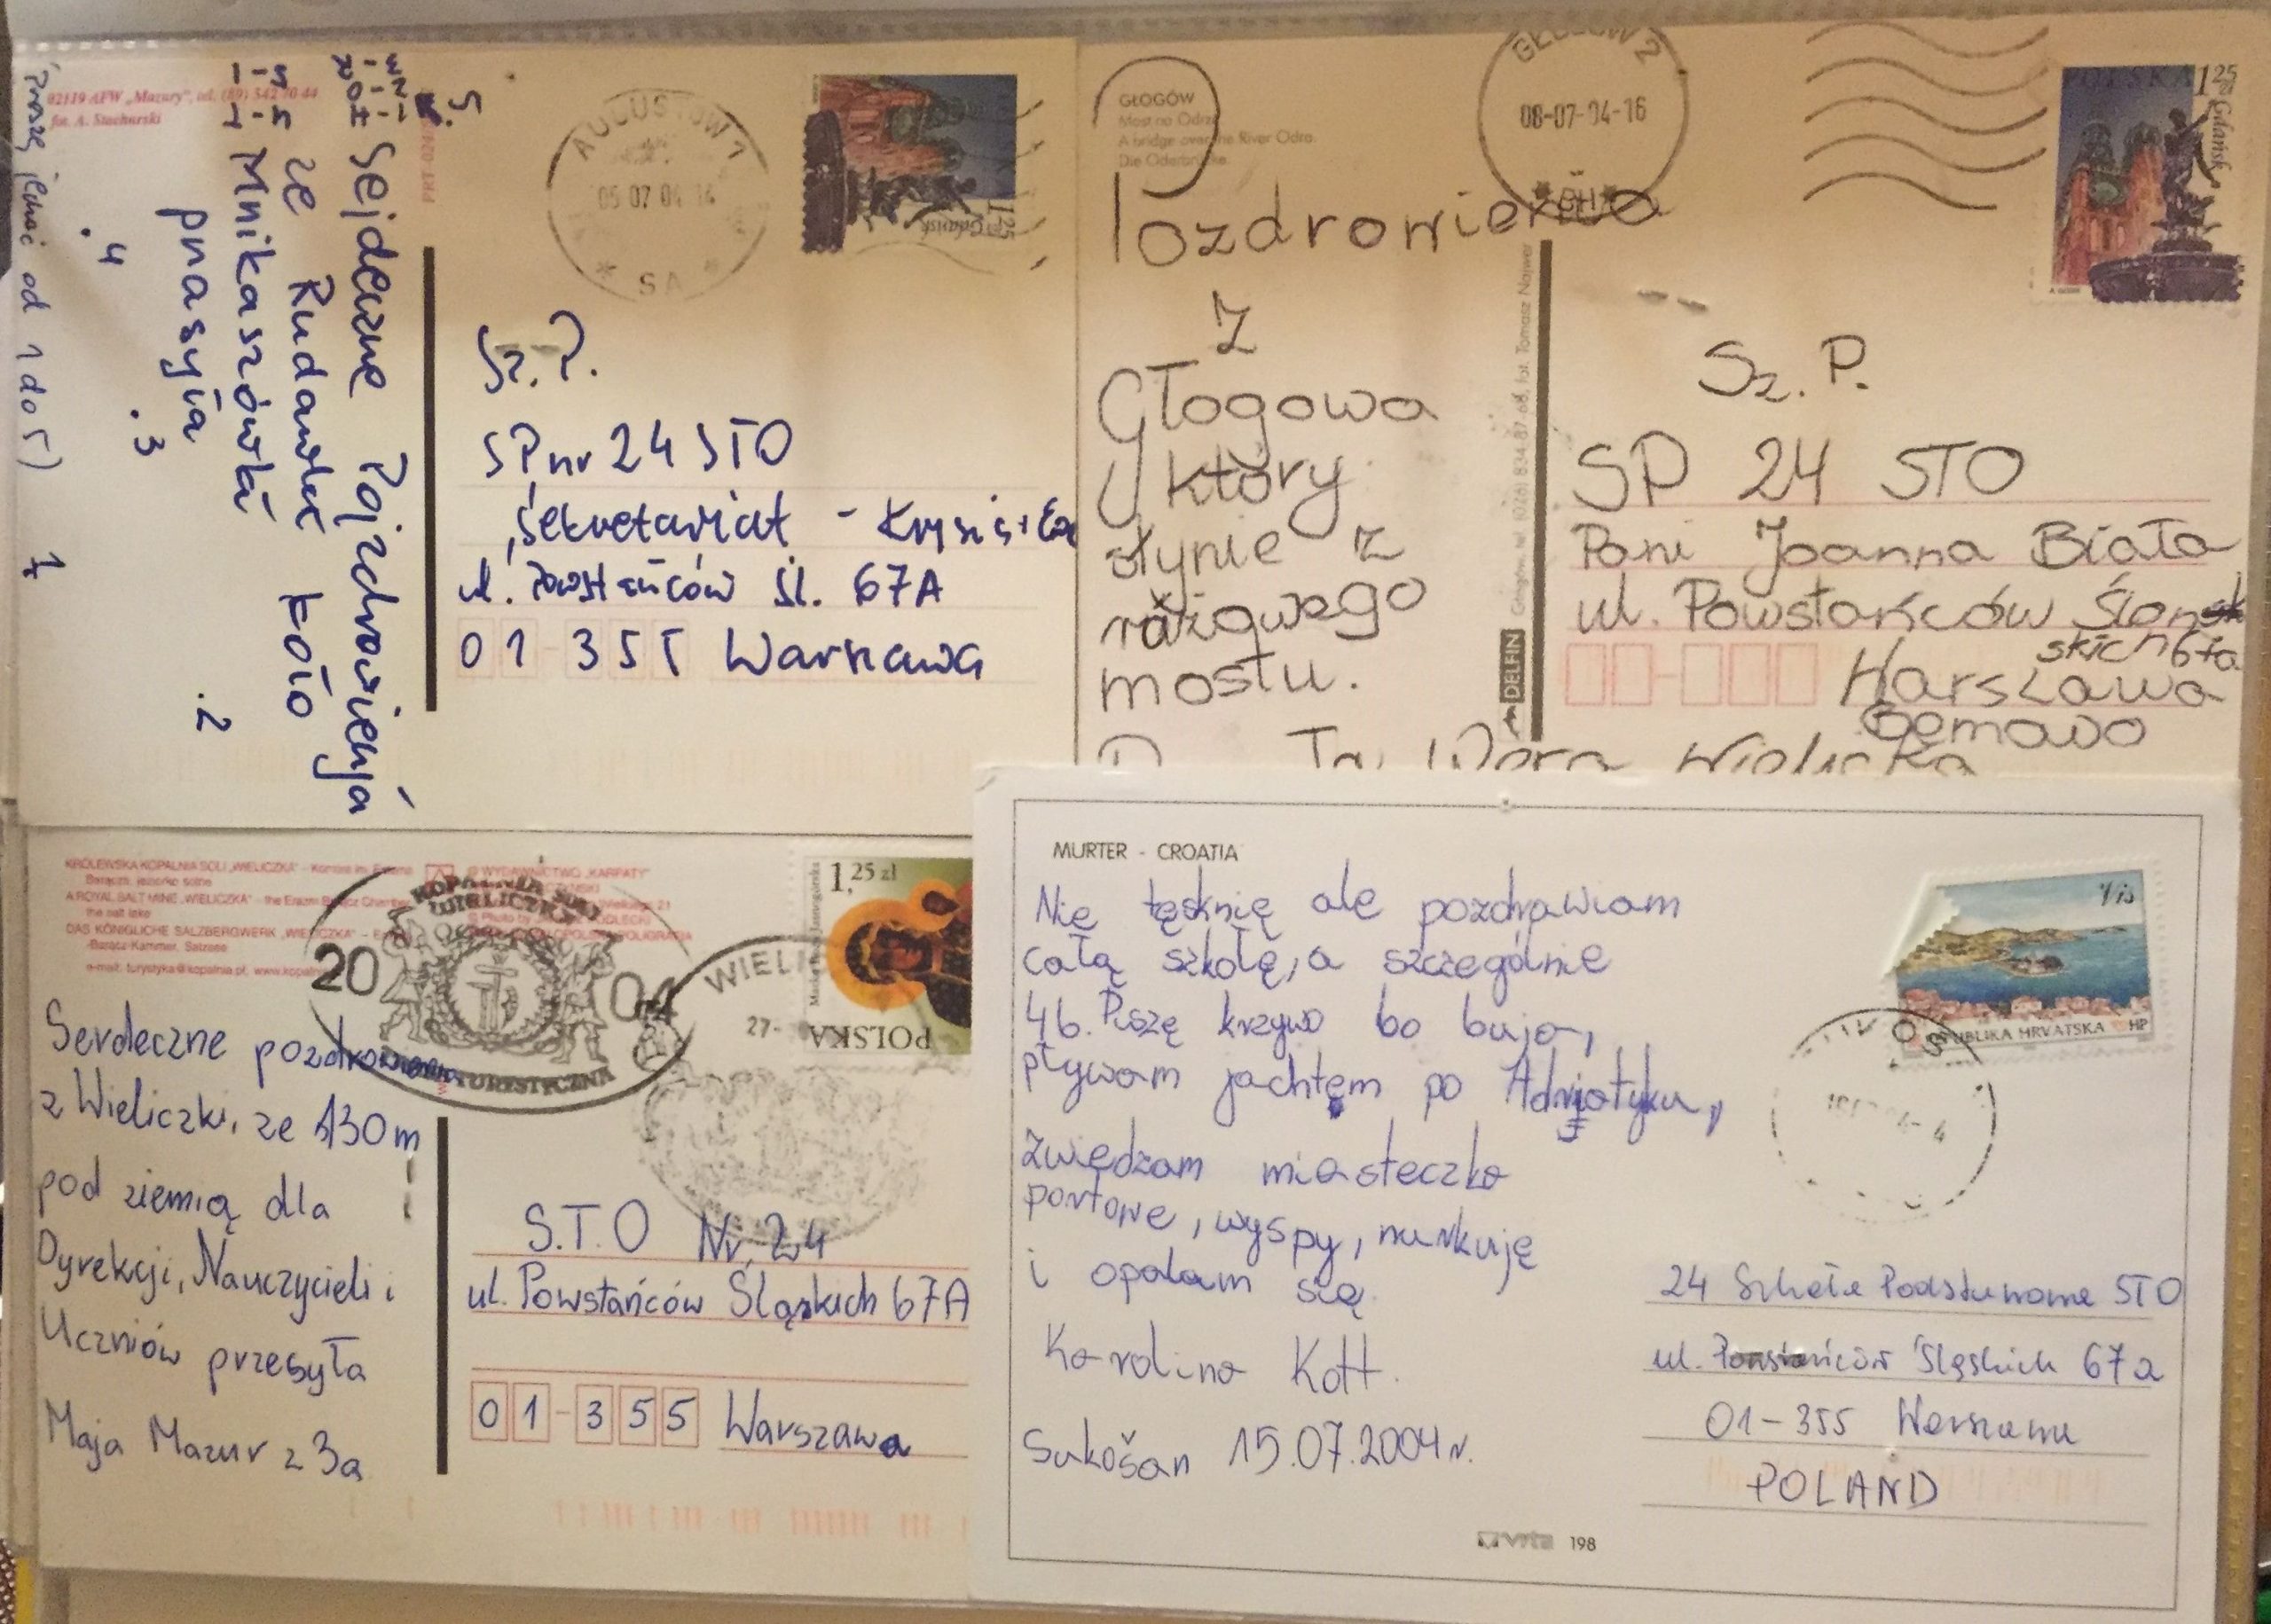 02119 AFW „Mazury", tel. (89) 542 70 44
fot. A. Stachurski
Proszę jechać od 1 do 5)
1
.2
.3
.4
5.
Sejdeczne Pojzdrowienja
ze Rudawki koło
Mnikaszówki
pnasyła
AUGUSTÓW 1
05 07 04 14
* SA *
1,25
Gdańsk
Sz. P.
SP nr 24 STO
Sekretariat -
ul. Powstańców Śl. 67A
01 355 Warszawa
GŁOGÓW
Most na Odrze.
A bridge over the River Odra.
Die Oderbrücke.
GŁOGÓW 2
08-07-04-16
* BH *
POLSKA 1,25
Gdańsk
Pozdrowienia
z
Głogowa
który
słynie z
różowego
mostu.
Wielicka
DELFIN Głogów, tel. (076) 834-87-68, fot. Tomasz Najwer
Sz. P.
SP 24 STO
Pani Joanna Biała
ul. Powstańców Ślonsk
skich 67a
Warszawa
Bemowo
KRÓLEWSKA KOPALNIA SOLI „WIELICZKA" - Komora im. Erazma
Barącza: jezioro solne
A ROYAL SALT MINE „WIELICZKA" - the Erazm Barącz Chamber
the salt lake
DAS KÖNIGLICHE SALZBERGWERK „WIELICZKA" -
-Barącz-Kammer, Salzsee
e-mail: turystyka@kopalnia.pl, www.kopalnia
© WYDAWNICTWO „KARPATY"
KOPALNIA SOLI
WIELICZKA
2004
TURYSTYCZNA
WIELI
27-
1,25 zł
POLSKA
Serdeczne pozdrowienia
z Wieliczki, ze 130m
pod ziemią dla
Dyrekcji, Nauczycieli i
Uczniów przesyła
Maja Mazur z 3a
S.T.O Nr. 24
ul. Powstańców Śląskich 67A
01-355 Warszawa
MURTER - CROATIA
Nie tęsknię ale pozdrawiam
całą szkołę, a szczególnie
4b. Piszę krzywo bo buja,
pływam jachtem po Adriatyku,
zwiedzam miasteczka
portowe, wyspy, nurkuję
i opalam się.
Karolina Kott.
Sukošan 15.07.2004 r.
Vis
REPUBLIKA HRVATSKA HP
24 Szkoła Podstawowa STO
ul. Powstańców Śląskich 67a
01-355 Warszawa
POLAND
198